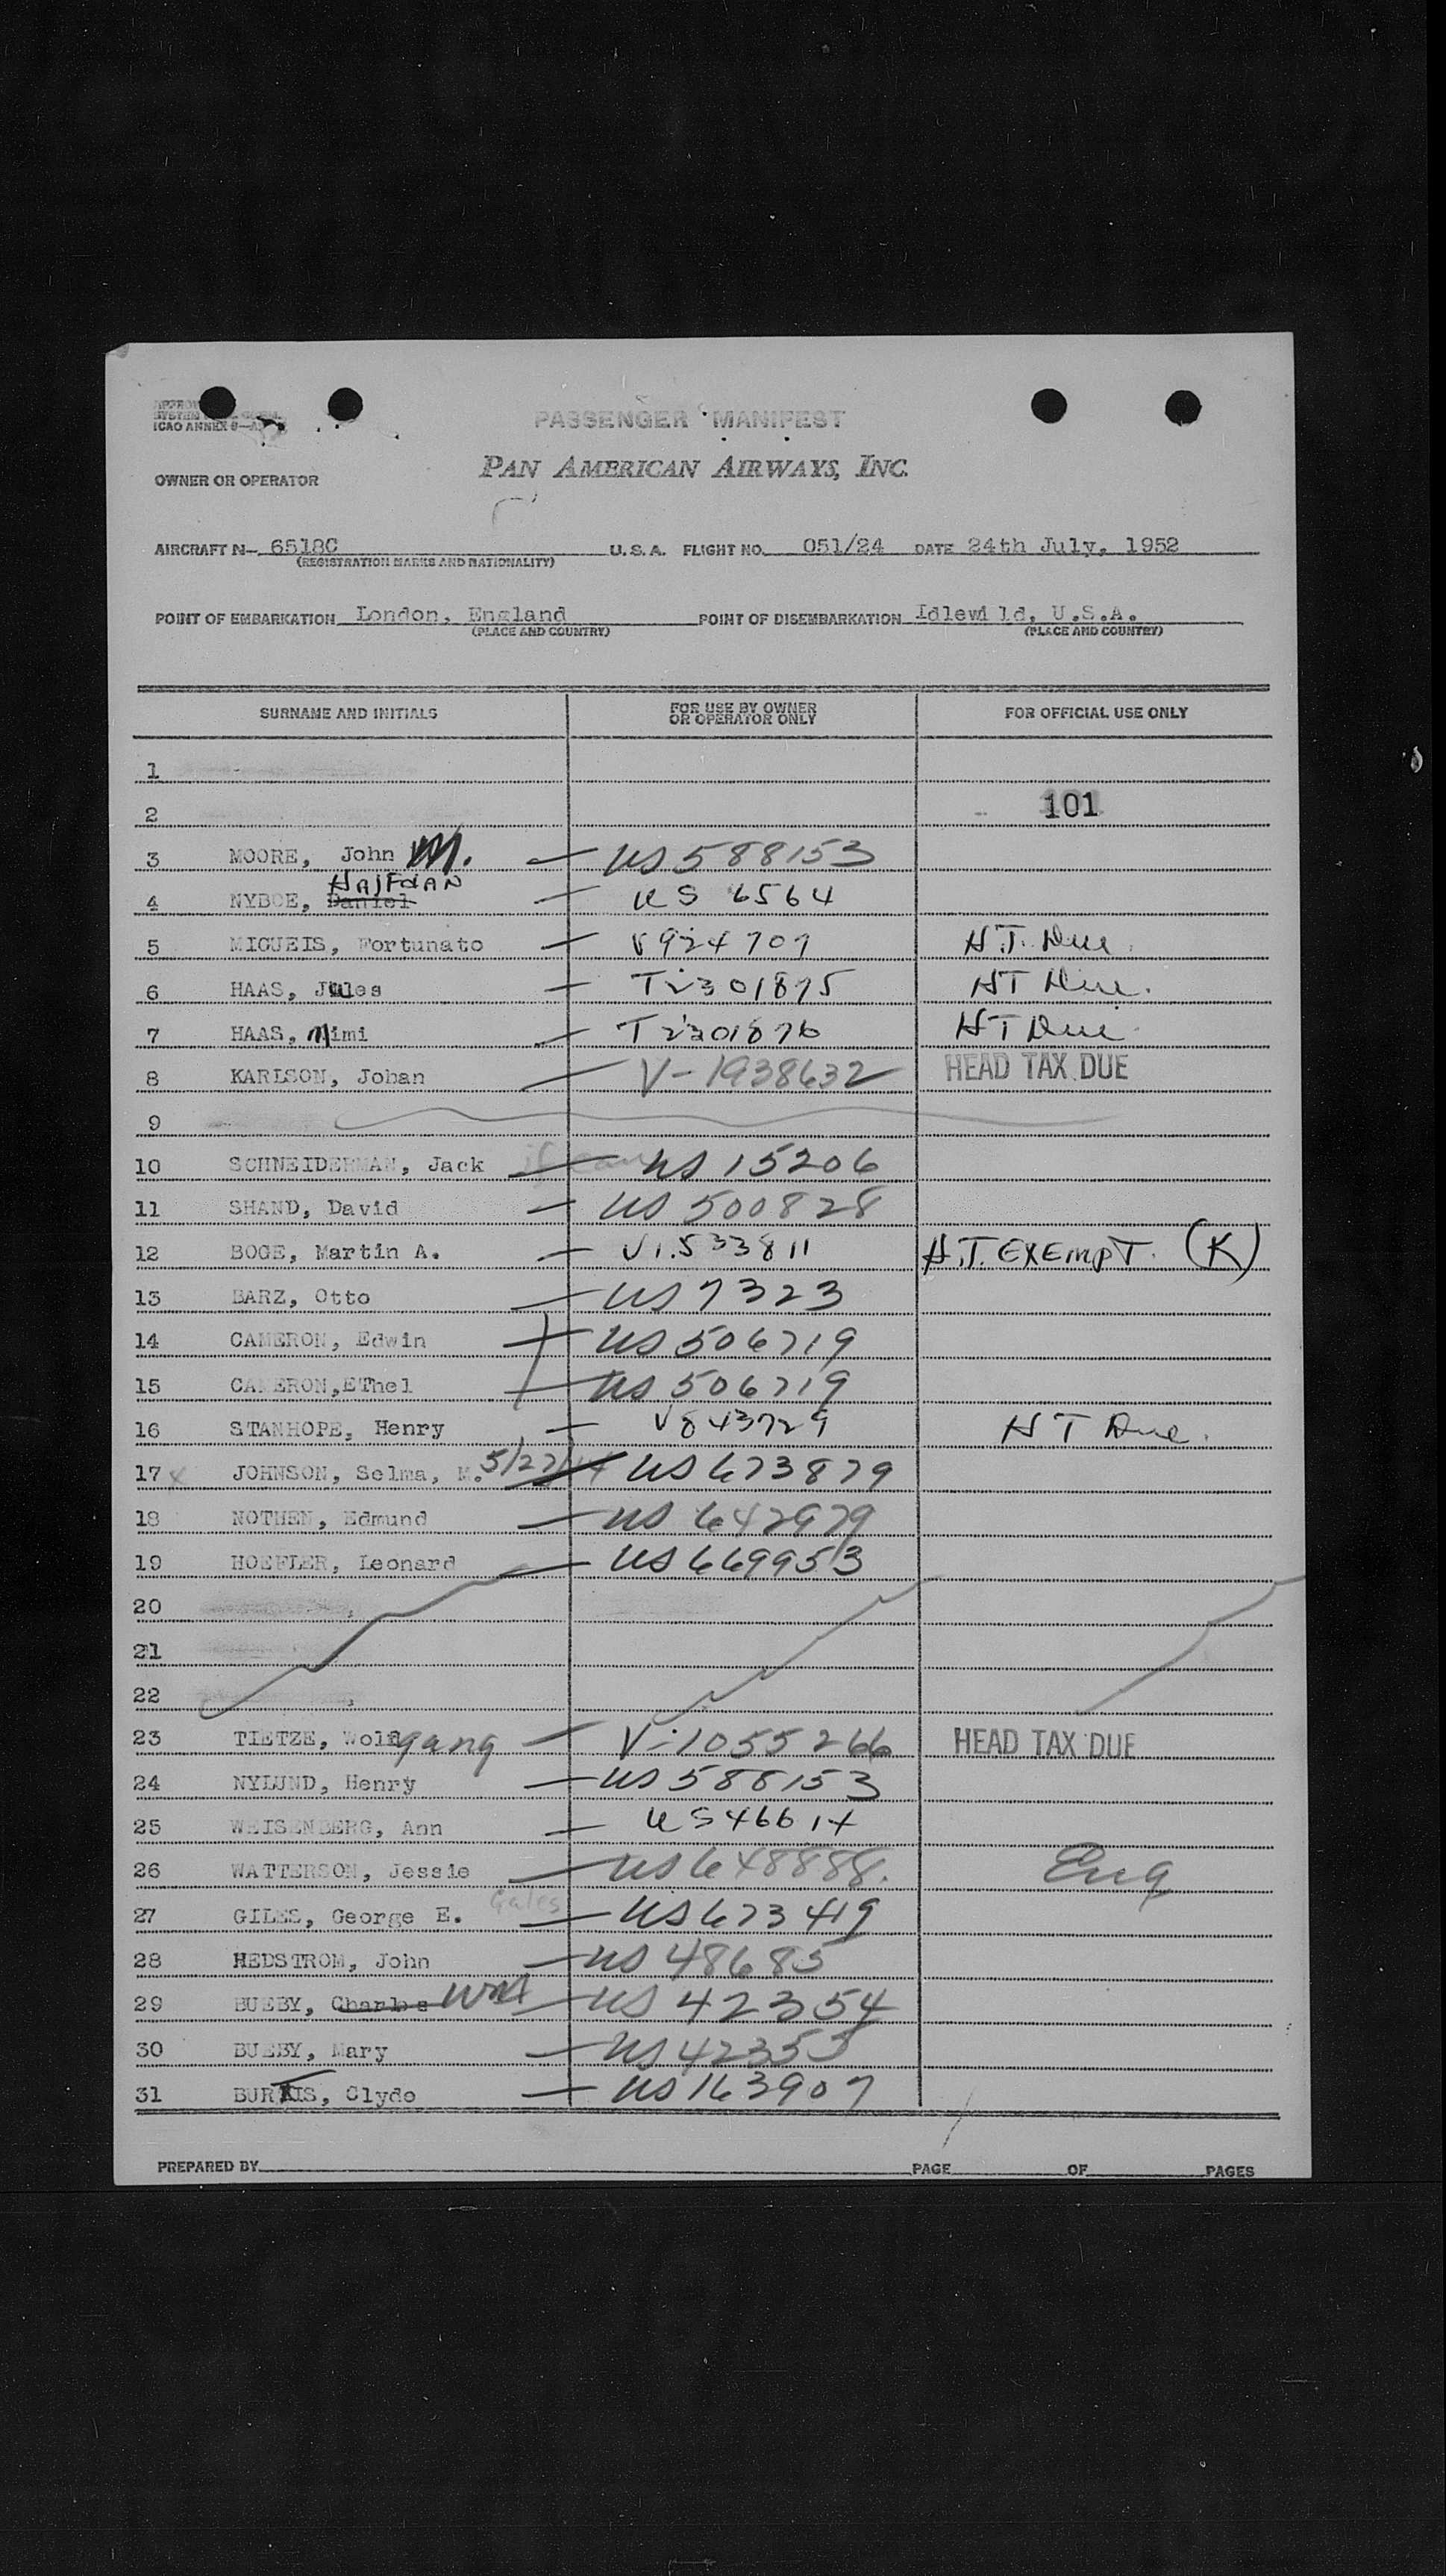 PASSENGER MANIFEST
ICAO ANNEX 9—
OWNER OR OPERATOR PAN AMERICAN AIRWAYS, INC.
AIRCRAFT N— 6518C U. S. A. FLIGHT NO. 051/24 DATE 24th July, 1952
(REGISTRATION MARKS AND NATIONALITY)
POINT OF EMBARKATION London, England POINT OF DISEMBARKATION Idlewild, U.S.A.
(PLACE AND COUNTRY) (PLACE AND COUNTRY)
SURNAME AND INITIALS FOR USE BY OWNER OR OPERATOR ONLY FOR OFFICIAL USE ONLY
1
2 101
3 MOORE, John M. — US 588153
HAlFdAN
4 NYBOE, Daniel — US 6564
5 MIGUEIS, Fortunato — V924707 H.T. Due.
6 HAAS, Jules — T2301875 HT Due.
7 HAAS, Mimi — T2301876 HT Due
8 KARLSON, Johan — V-1938632 HEAD TAX DUE
9
10 SCHNEIDERMAN, Jack — US 15206
11 SHAND, David — US 500828
12 BOGE, Martin A. — V1.533811 H.T. EXEMPT. (K)
13 BARZ, Otto — US 7323
14 CAMERON, Edwin — US 506719
15 CAMERON, EThel — US 506719
16 STANHOPE, Henry — V843729 H T Due.
17 x JOHNSON, Selma, M. 5/27/14 US 673879
18 NOTHEN, Edmund — US 642979
19 HOEFLER, Leonard — US 669953
20
21
22
23 TIETZE, Wolfgang — V-1055266 HEAD TAX DUE
24 NYLUND, Henry — US 588153
25 WEISENBERG, Ann — US 46614
26 WATTERSON, Jessie — US 648888. Eng
27 GILES, George E. Gales — US 673419
28 HEDSTROM, John — US 48685
29 BUEBY, Charles Wm — US 42354
30 BUEBY, Mary — US 42355
31 BURTIS, Clyde — US 163907
PREPARED BY PAGE OF PAGES